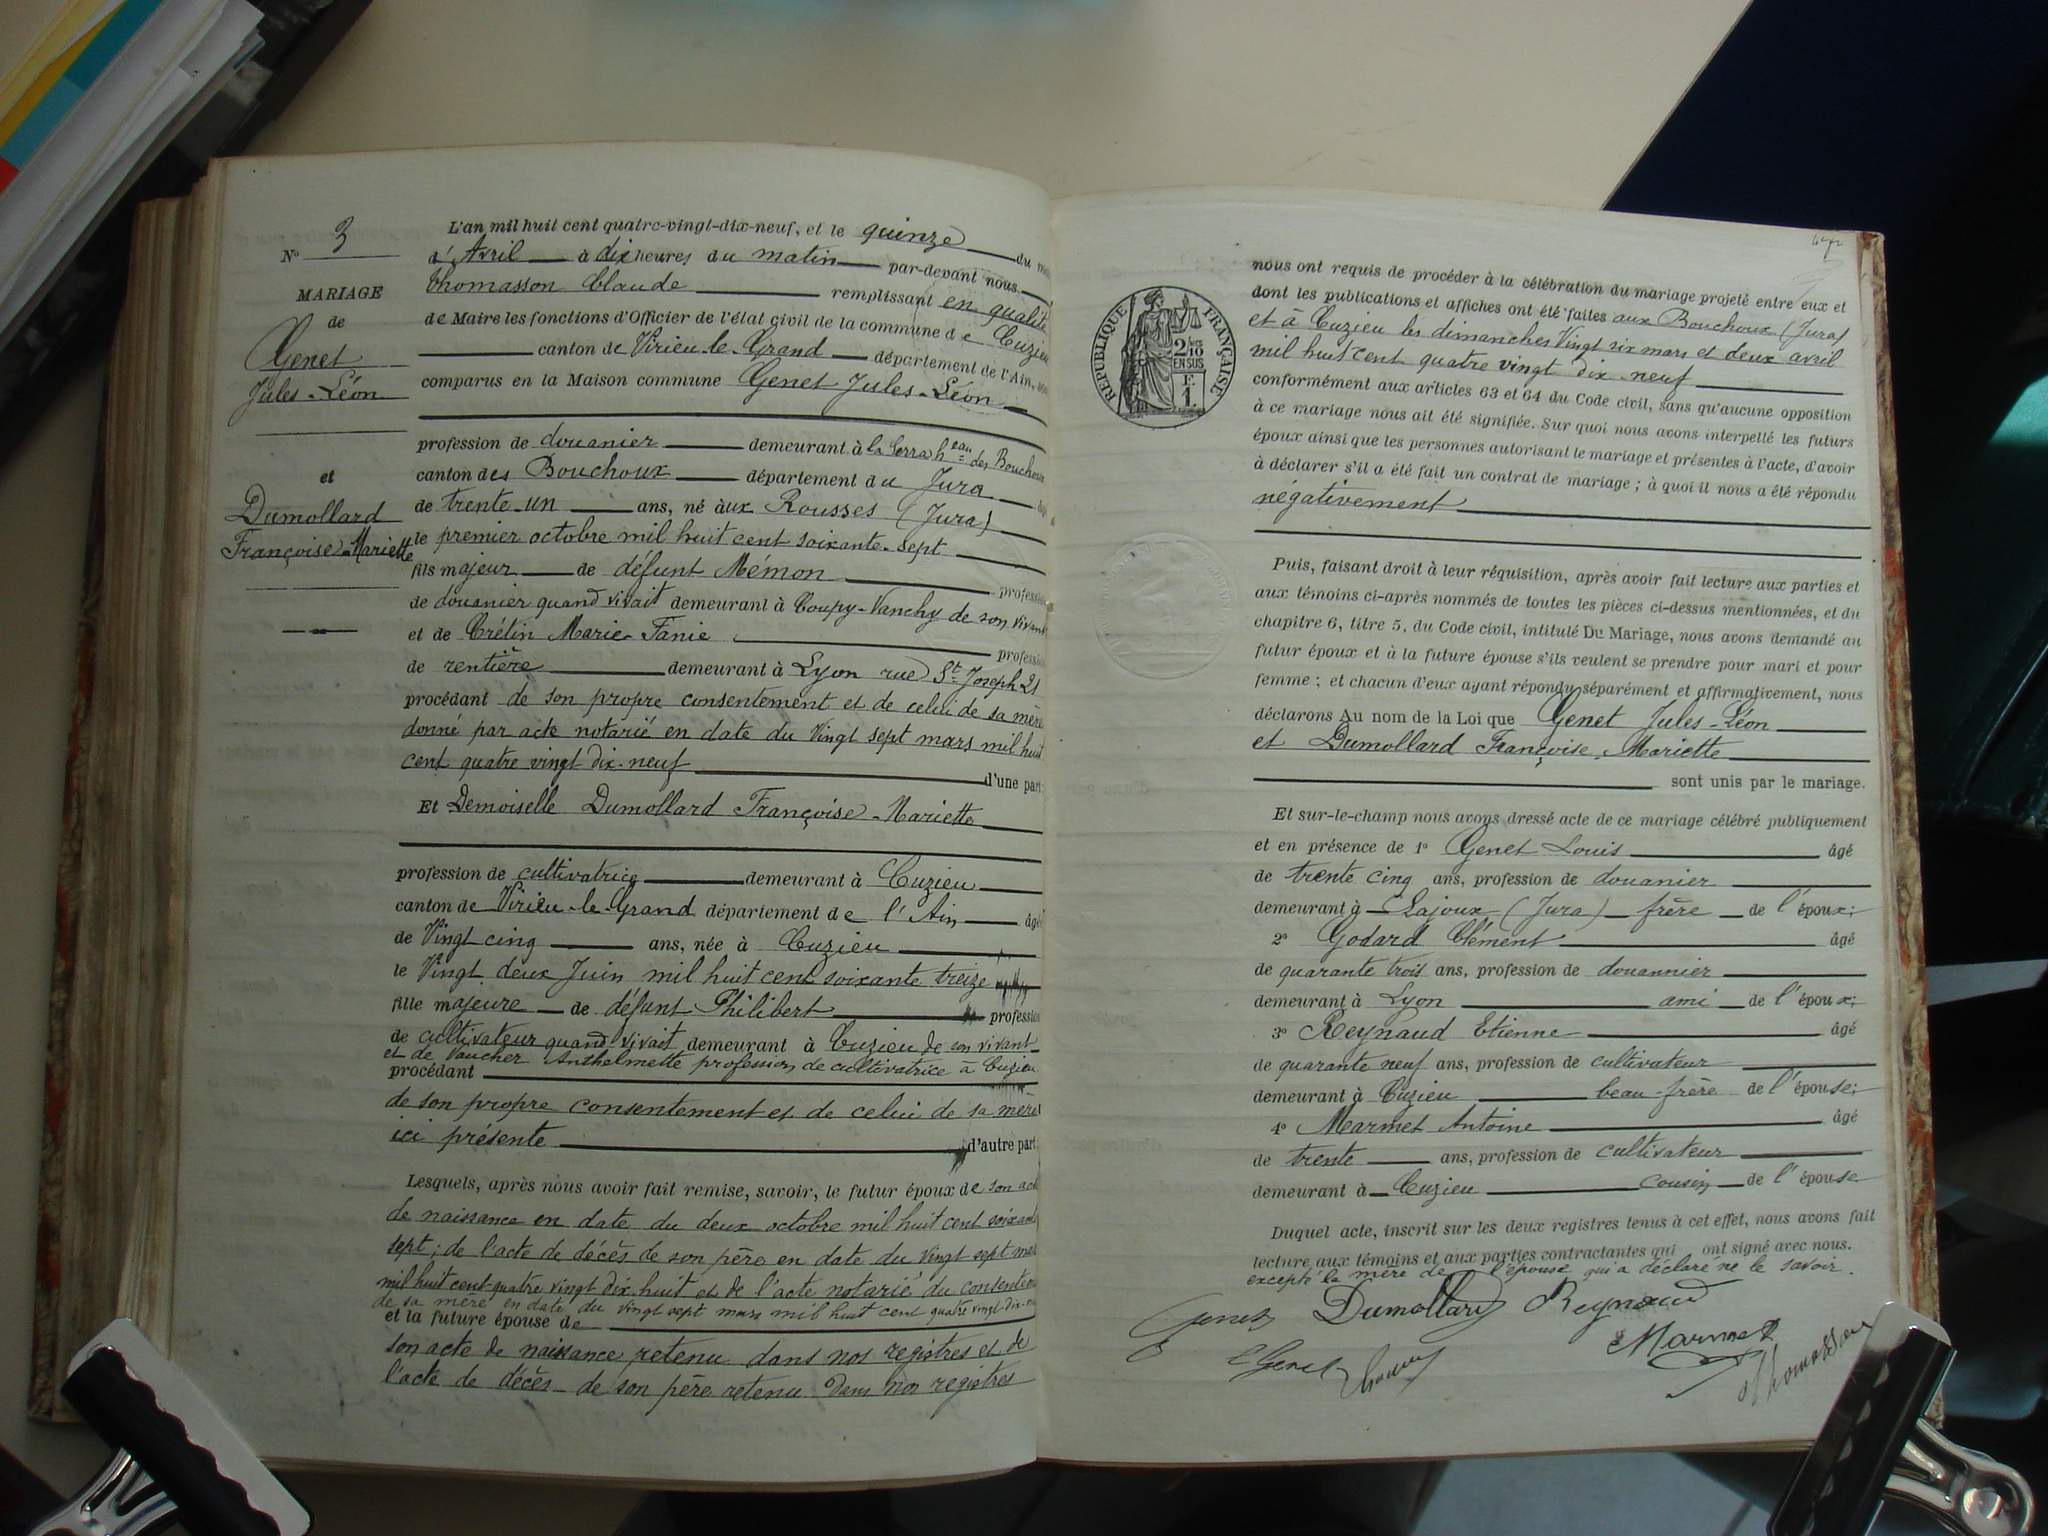 N° 3
MARIAGE
de
Genet
Jules-Léon
et
Dumollard
Françoise-Mariette
L'an mil huit cent quatre-vingt-dix-neuf, et le quinze du
d'Avril à dix heures du matin par-devant nous
Thomasson Claude remplissant en qualité
de Maire les fonctions d'Officier de l'état civil de la commune de Cuzieu
canton de Virieu-le-Grand département de l'Ain,
comparus en la Maison commune Genet Jules-Léon
profession de douanier demeurant à la Serra heau des Bouchoux
canton des Bouchoux département du Jura
de trente-un ans, né aux Rousses (Jura)
le premier octobre mil huit cent soixante-sept
fils majeur de défunt Mémon profession
de douanier quand vivait demeurant à Coupy-Vanchy de son vivant
et de Crétin Marie-Fanie profession
de rentière demeurant à Lyon rue St Joseph 21
procédant de son propre consentement et de celui de sa mère
donné par acte notarié en date du vingt sept mars mil huit
cent quatre vingt dix-neuf d'une part
Et Demoiselle Dumollard Françoise-Mariette
profession de cultivatrice demeurant à Cuzieu
canton de Virieu-le-Grand département de l'Ain âgé
de Vingt cinq ans, née à Cuzieu
le Vingt deux Juin mil huit cent soixante treize
fille majeure de défunt Philibert profession
de cultivateur quand vivait demeurant à Cuzieu de son vivant
et de Vaucher Anthelmette profession de cultivatrice à Cuzieu
procédant
de son propre consentement et de celui de sa mère
ici présente d'autre part
Lesquels, après nous avoir fait remise, savoir, le futur époux de son acte
de naissance en date du deux octobre mil huit cent soixante
sept; de l'acte de décès de son père en date du vingt sept mai
mil huit cent quatre vingt dix huit et de l'acte notarié du
de sa mère en date du vingt sept mars mil huit cent quatre vingt-dix-neuf
et la future épouse de
son acte de naissance retenu dans nos registres et de
l'acte de décès de son père retenu dans nos registres
RÉPUBLIQUE FRANÇAISE
2/10
EN SUS
F.
1.
nous ont requis de procéder à la célébration du mariage projeté entre eux et
dont les publications et affiches ont été faites aux Bouchoux (Jura)
et à Cuzieu les dimanches Vingt six mars et deux avril
mil huit cent quatre vingt dix-neuf
conformément aux articles 63 et 64 du Code civil, sans qu'aucune opposition
à ce mariage nous ait été signifiée. Sur quoi nous avons interpellé les futurs
époux ainsi que les personnes autorisant le mariage et présentes à l'acte, d'avoir
à déclarer s'il a été fait un contrat de mariage ; à quoi il nous a été répondu
négativement
Puis, faisant droit à leur réquisition, après avoir fait lecture aux parties et
aux témoins ci-après nommés de toutes les pièces ci-dessus mentionnées, et du
chapitre 6, titre 5, du Code civil, intitulé Du Mariage, nous avons demandé au
futur époux et à la future épouse s'ils veulent se prendre pour mari et pour
femme ; et chacun d'eux ayant répondu séparément et affirmativement, nous
déclarons Au nom de la Loi que Genet Jules-Léon
et Dumollard Françoise-Mariette
sont unis par le mariage.
Et sur-le-champ nous avons dressé acte de ce mariage célébré publiquement
et en présence de 1° Genet Louis âgé
de trente cinq ans, profession de douanier
demeurant à Lajoux (Jura) frère de l'époux;
2° Godard Clément âgé
de quarante trois ans, profession de douannier
demeurant à Lyon ami de l'époux;
3° Reynaud Etienne âgé
de quarante neuf ans, profession de cultivateur
demeurant à Cuzieu beau-frère de l'épouse;
4° Marmet Antoine âgé
de trente ans, profession de cultivateur
demeurant à Cuzieu cousin de l'épouse
Duquel acte, inscrit sur les deux registres tenus à cet effet, nous avons fait
lecture aux témoins et aux parties contractantes qui ont signé avec nous.
excepté la mère de l'épouse qui a déclaré ne le savoir.
Genet Dumollard Reynaud
Genet Marmet Thomasson